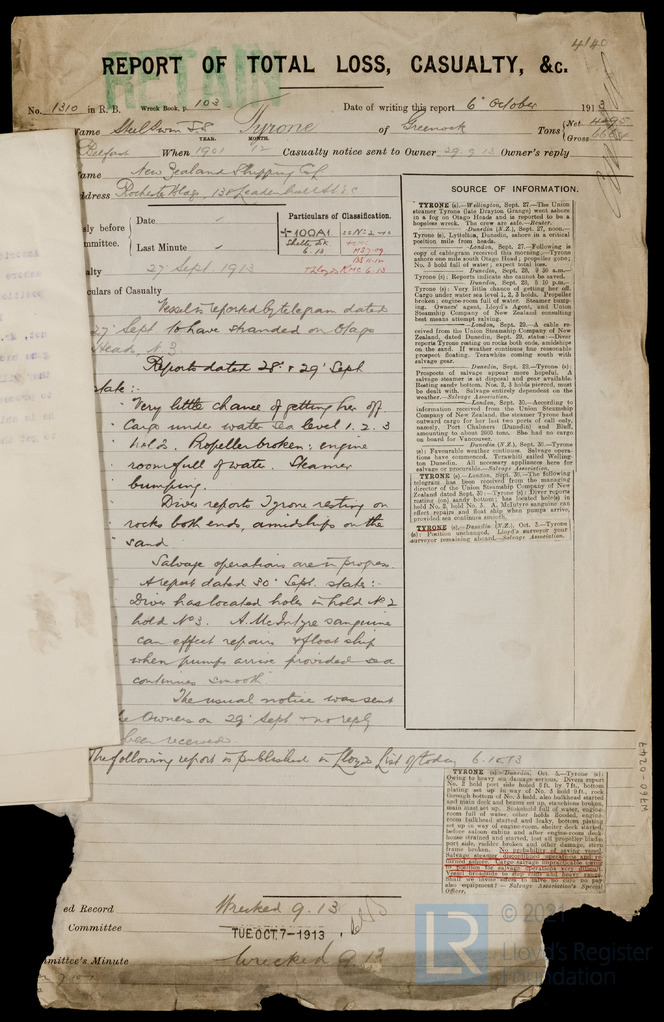 4140
RETAIN
REPORT OF TOTAL LOSS, CASUALTY, &c.
No. 1310 in R. B. Wreck Book, p. 103 Date of writing this report 6 October 191
Name Steel Screw SS Tyrone of Greenock Tons Net 4295
YEAR. MONTH. Gross
Belfast When 1901 12 Casualty notice sent to Owner 29.9.13 Owner's reply
ame New Zealand Shipping Co
ddress Rochester Bldgs, 138 Leadenhall St EC
SOURCE OF INFORMATION.
sly before Date Particulars of Classification.
mmittee. Last Minute +100A1
Shelter Dk
6.13
alty 27 Sept 1913
culars of Casualty
Vessel is reported by telegram dated
27 Sept to have stranded on Otago
Heads, N Z
Reports dated 28 & 29 Sept
state:-
Very little chance of getting her off
Cargo under water sea level 1. 2. 3
holds. Propeller broken: engine
room full of water. Steamer
bumping.
Diver reports Tyrone resting on
rocks both ends, amidships on the
sand.
Salvage operations are in progress.
A report dated 30 Sept. states:-
Diver has located holes in hold No 2
hold No 3. A. McIntyre sanguine
can effect repairs & float ship
when pumps arrive provided sea
continues smooth.
The usual notice was sent
Owners on 29 Sept & no reply
been received.
The following report is published in Lloyds List of today 6.10.13
TYRONE (s).—Wellington, Sept. 27.—The Union
steamer Tyrone (late Drayton Grange) went ashore
in a fog on Otago Heads and is reported to be a
hopeless wreck. The crew are safe.—Reuter.
Dunedin (N.Z.), Sept. 27, noon.—
Tyrone (s), Lyttelton, Dunedin, ashore in a critical
position mile from heads.
London, Sept. 27.—Following is
copy of cablegram received this morning: Tyrone
ashore one mile south Otago Head; propeller gone;
No. 3 hold full of water; expect total loss.
Dunedin, Sept. 28, 9 30 a.m.—
Tyrone (s): Reports indicate she cannot be saved.
Dunedin, Sept. 28, 5 10 p.m.—
Tyrone (s): Very little chance of getting her off.
Cargo under water sea level 1, 2, 3 holds. Propeller
broken; engine-room full of water. Steamer bump-
ing. Owners' agent, Lloyd's Agent, and Union
Steamship Company of New Zealand consulting
best means attempt salving.
London, Sept. 29.—A cable re-
ceived from the Union Steamship Company of New
Zealand, dated Dunedin, Sept. 29, states:—Diver
reports Tyrone resting on rocks both ends, amidships
on the sand. If weather continues fine reasonable
prospect floating. Terawhite coming south with
salvage gear.
Dunedin, Sept. 29.—Tyrone (s):
Prospects of salvage appear more hopeful. A
salvage steamer is at disposal and gear available.
Resting sandy bottom. Nos. 2, 3 holds pierced, must
be dealt with. Salvage entirely dependent on the
weather.—Salvage Association.
London, Sept. 30.—According to
information received from the Union Steamship
Company of New Zealand, the steamer Tyrone had
outward cargo for her last two ports of call only,
namely, Port Chalmers (Dunedin) and Bluff,
amounting to about 2600 tons. She had no cargo
on board for Vancouver.
Dunedin (N.Z.), Sept. 30.—Tyrone
(s): Favourable weather continues. Salvage opera-
tions have commenced. Terawhiti sailed Welling-
ton Dunedin. All necessary appliances here for
salvage or procurable.—Salvage Association.
TYRONE (s).—London, Sept. 30.—The following
telegram has been received from the managing
director of the Union Steamship Company of New
Zealand dated Sept. 30:—Tyrone (s): Diver reports
resting (on) sandy bottom; has located hole(s) in
hold No. 2, hold No. 3. A. McIntyre sanguine can
effect repairs and float ship when pumps arrive,
provided sea continues smooth.
TYRONE (s).—Dunedin (N.Z.), Oct. 3.—Tyrone
(s): Position unchanged. Lloyd's surveyor your
surveyor remaining aboard.—Salvage Association.
TYRONE (s).—Dunedin, Oct. 5.—Tyrone (s):
Owing to heavy sea damage serious. Divers report
No. 2 hold port side holed 5 ft. by 7 ft., bottom
plating set up in way of No. 3 hold 9 ft., rock
through bottom of No. 3 hold, also bulkhead started
and main deck and beams set up, stanchions broken,
main mast set up. Stokehold full of water, engine-
room full of water, other holds flooded, engine-
room bulkhead started and leaky, bottom plating
set up in way of engine-room, shelter deck started,
before saloon cabin and after engine-room deck
house strained and started, lost all propeller blades
port side, rudder broken and other damage, stern
frame broken. No probability of saving vessel.
Salvage steamer discontinued operations and re-
turned ashore. Cargo salvage impracticable owing
to position for salvage operations very difficult.
Vessel broadside to deep reef and heavy surge.
also equipment?—Salvage Association's Special
Officer.
ed Record Wrecked 9.13
Committee TUE.OCT.7-1913
mmittee's Minute Wrecked 9.13
W760-0247
LR
© 2021
Lloyd's Register
Foundation